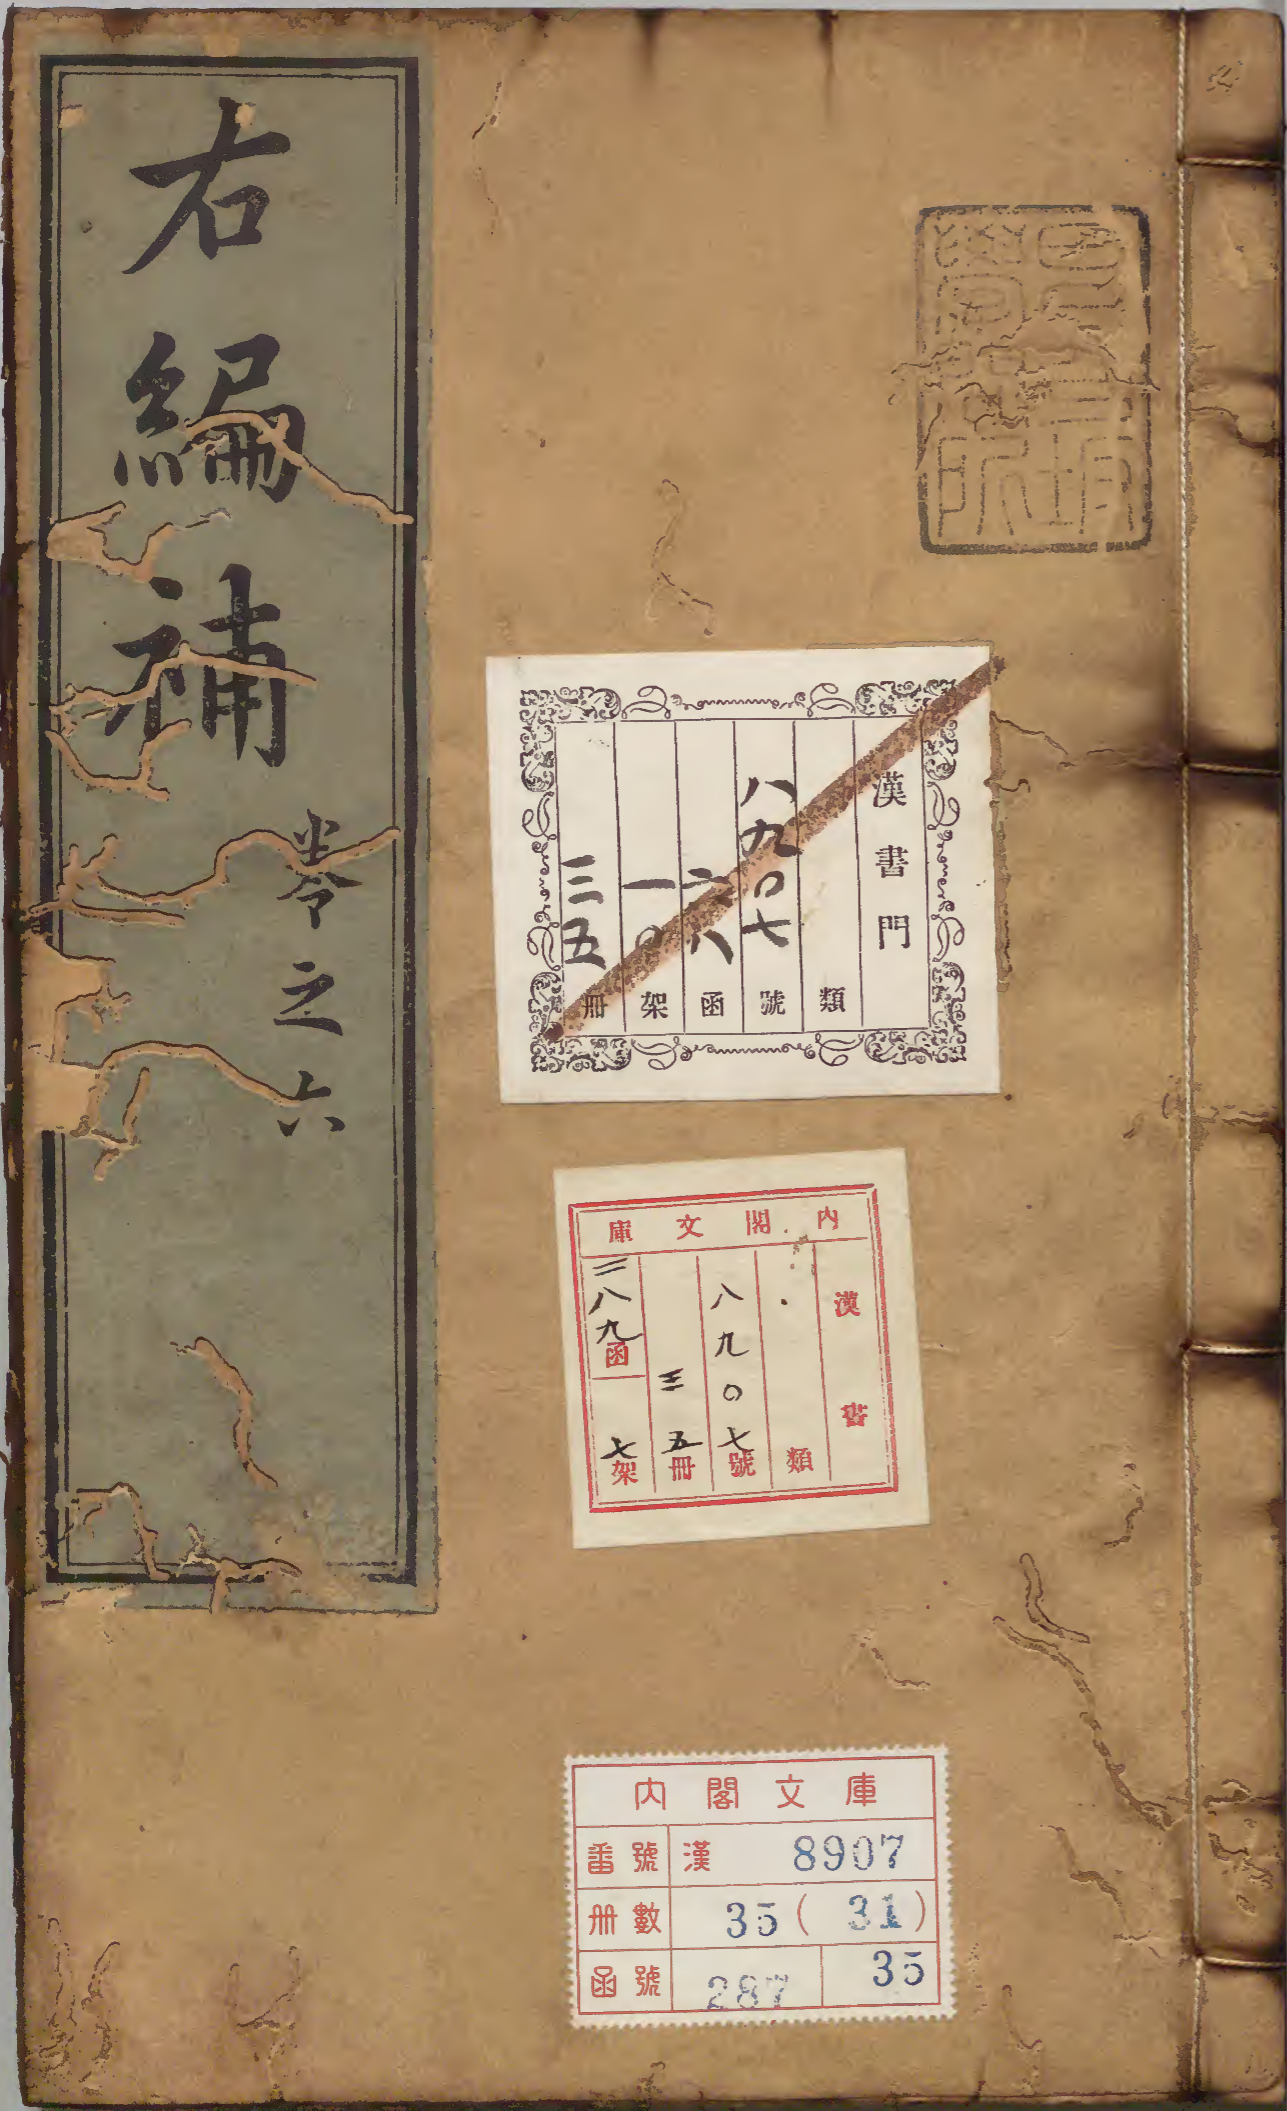 右編補
卷之六
昌平坂
學問所
漢書門
類
八九〇七號
六八函
一〇架
三五冊
內閣文庫
漢書
類
八九〇七號
三五冊
二八九函
七架
內閣文庫
番號 漢 8907
冊數 35 ( 31 )
函號 287 35